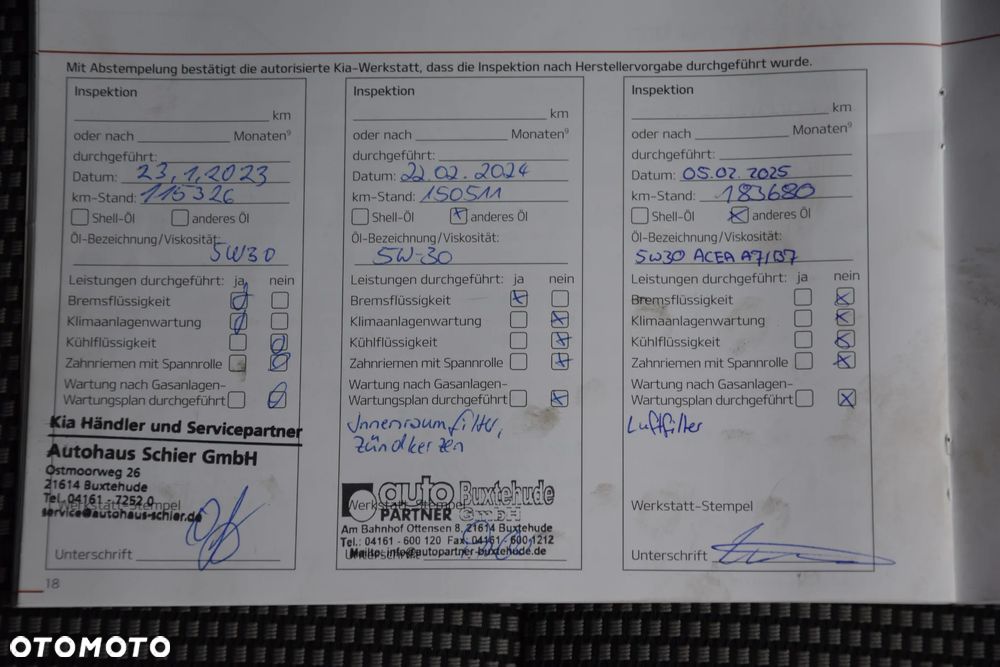 Mit Abstempelung bestätigt die autorisierte Kia-Werkstatt, dass die Inspektion nach Herstellervorgabe durchgeführt wurde.
Inspektion
km
oder nach Monaten⁹
durchgeführt:
Datum: 23.1.2023
km-Stand: 115326
Shell-Öl anderes Öl
Öl-Bezeichnung/Viskosität:
5W30
Leistungen durchgeführt: ja nein
Bremsflüssigkeit
Klimaanlagenwartung
Kühlflüssigkeit
Zahnriemen mit Spannrolle
Wartung nach Gasanlagen-
Wartungsplan durchgeführt
Kia Händler und Servicepartner
Autohaus Schier GmbH
Ostmoorweg 26
21614 Buxtehude
Tel. 04161 - 7252 0
Werkstatt-Stempel
service@autohaus-schier.de
Unterschrift
18
Inspektion
km
oder nach Monaten⁹
durchgeführt:
Datum: 22.02.2024
km-Stand: 150511
Shell-Öl anderes Öl
Öl-Bezeichnung/Viskosität:
5W-30
Leistungen durchgeführt: ja nein
Bremsflüssigkeit
Klimaanlagenwartung
Kühlflüssigkeit
Zahnriemen mit Spannrolle
Wartung nach Gasanlagen-
Wartungsplan durchgeführt
Innenraumfilter,
Zündkerzen
auto Buxtehude
Werkstatt-Stempel
PARTNER GmbH
Am Bahnhof Ottensen 8, 21614 Buxtehude
Tel.: 04161 - 600 120 Fax: 04161 - 600 1212
Mailto: info@autopartner-buxtehude.de
Unterschrift
Inspektion
km
oder nach Monaten⁹
durchgeführt:
Datum: 05.02.2025
km-Stand: 183680
Shell-Öl anderes Öl
Öl-Bezeichnung/Viskosität:
5W30 ACEA A7/B7
Leistungen durchgeführt: ja nein
Bremsflüssigkeit
Klimaanlagenwartung
Kühlflüssigkeit
Zahnriemen mit Spannrolle
Wartung nach Gasanlagen-
Wartungsplan durchgeführt
Luftfilter
Werkstatt-Stempel
Unterschrift
OTOMOTO